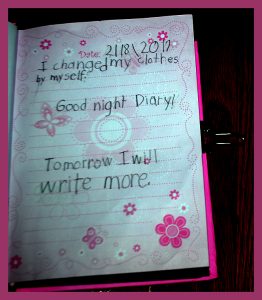 Date: 21\8\2012
I changed my clothes
by myself.
Good night Diary!
Tomorrow I will
write more.